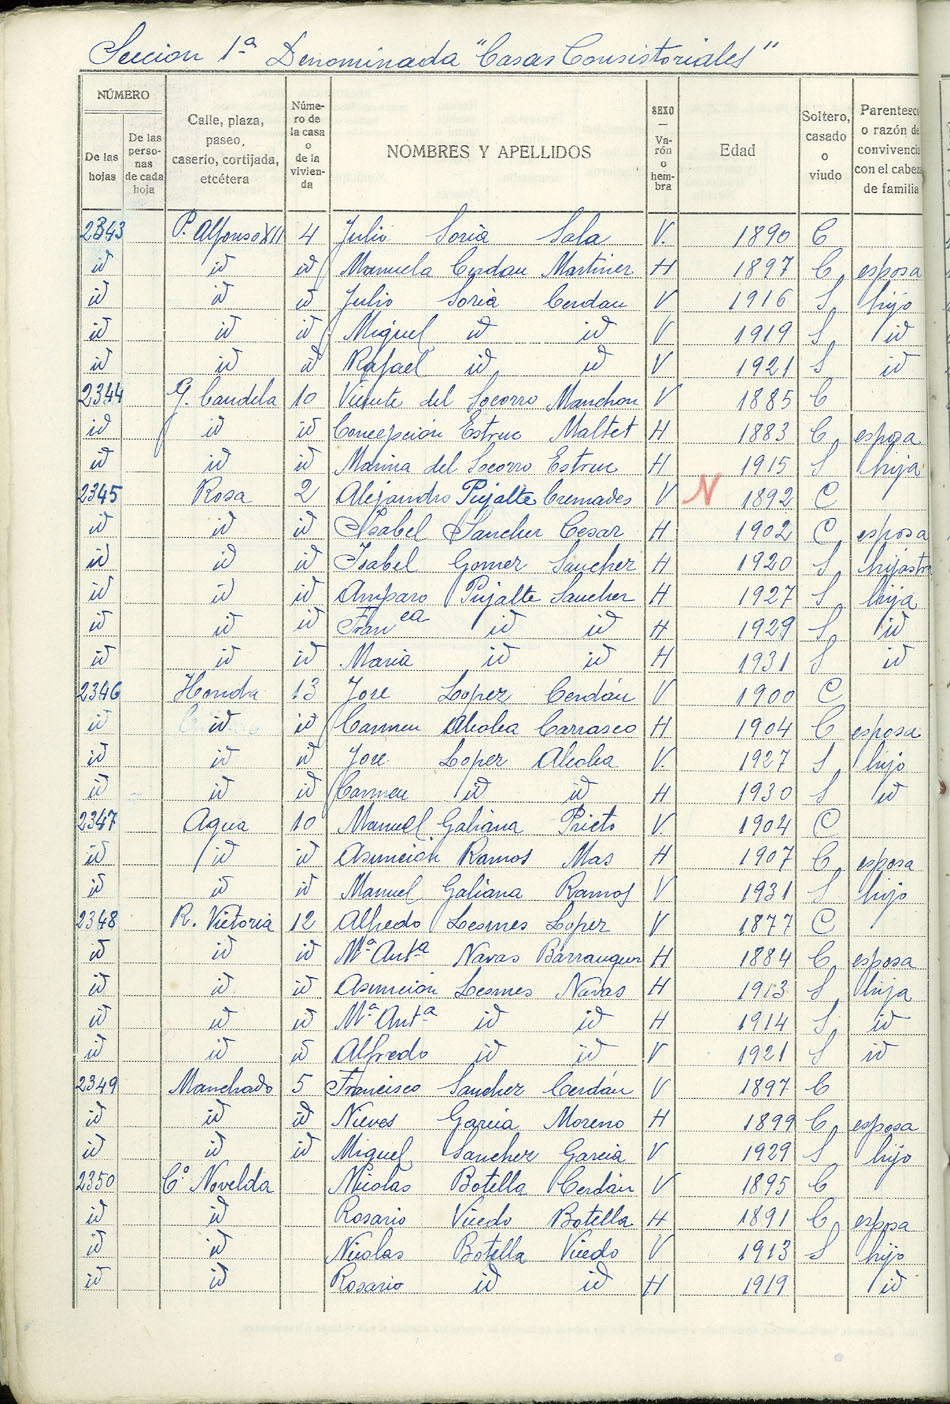 Seccion 1ª Denominada "Casas Consistoriales"
NÚMERO
De las hojas
De las perso- nas de cada hoja
Calle, plaza, paseo, caserío, cortijada, etcétera
Núme- ro de la casa o de la vivien- da
NOMBRES Y APELLIDOS
SEXO — Va- rón o hem- bra
Edad
Soltero, casado o viudo
Parentesco o razón de convivencia con el cabeza de familia
2343 P. Alfonso XII 4 Julio Soria Sala V. 1890 C
id id id Manuela Cerdan Martinez H 1897 C esposa
id id id Julio Soria Cerdan V 1916 S hijo
id id id Miguel id id V 1919 S id
id id id Rafael id id V 1921 S id
2344 G. Candela 10 Vicente del Socorro Manchon V 1885 C
id id id Concepción Estruc Maltet H 1883 C esposa
id id id Marina del Socorro Estruc H 1915 S hija
2345 Rosa 2 Alejandro Pujalte Cremades V N 1892 C
id id id Isabel Sancher Cesar H 1902 C esposa
id id id Isabel Gomer Sancher H 1920 S hijastra
id id id Amparo Pujalte Sancher H 1927 S hija
id id id Franca id id H 1929 S id
id id id Maria id id H 1931 S id
2346 Honda 13 Jose Lopez Cerdán V 1900 C
id id id Carmen Alcolea Carrasco H 1904 C esposa
id id id Jose Loper Alcolea V. 1927 S hijo
id id id Carmen id id H 1930 S id
2347 Agua 10 Manuel Galiana Prieto V. 1904 C
id id id Asunción Ramos Mas H 1907 C esposa
id id id Manuel Galiana Ramos V 1931 S hijo
2348 R. Victoria 12 Alfredo Lesmes Loper V 1877 C
id id id Mª Antª Navas H 1884 C esposa
id id id Asuncion Lesmes Navas H 1913 S hija
id id id Mª Antª id id H 1914 S id
id id id Alfredo id id V 1921 S id
2349 Manchado 5 Francisco Sancher Cerdán V 1897 C
id id id Nieves Garcia Moreno H 1899 C esposa
id id id Miguel Sancher Garcia V 1929 S hijo
2350 Cº Novelda Nicolas Botella Cerdán V 1895 C
id id Rosario Vicedo Botella H 1891 C esposa
id id Nicolas Botella Vicedo V 1913 S hijo
id id Rosario id id H 1919 id